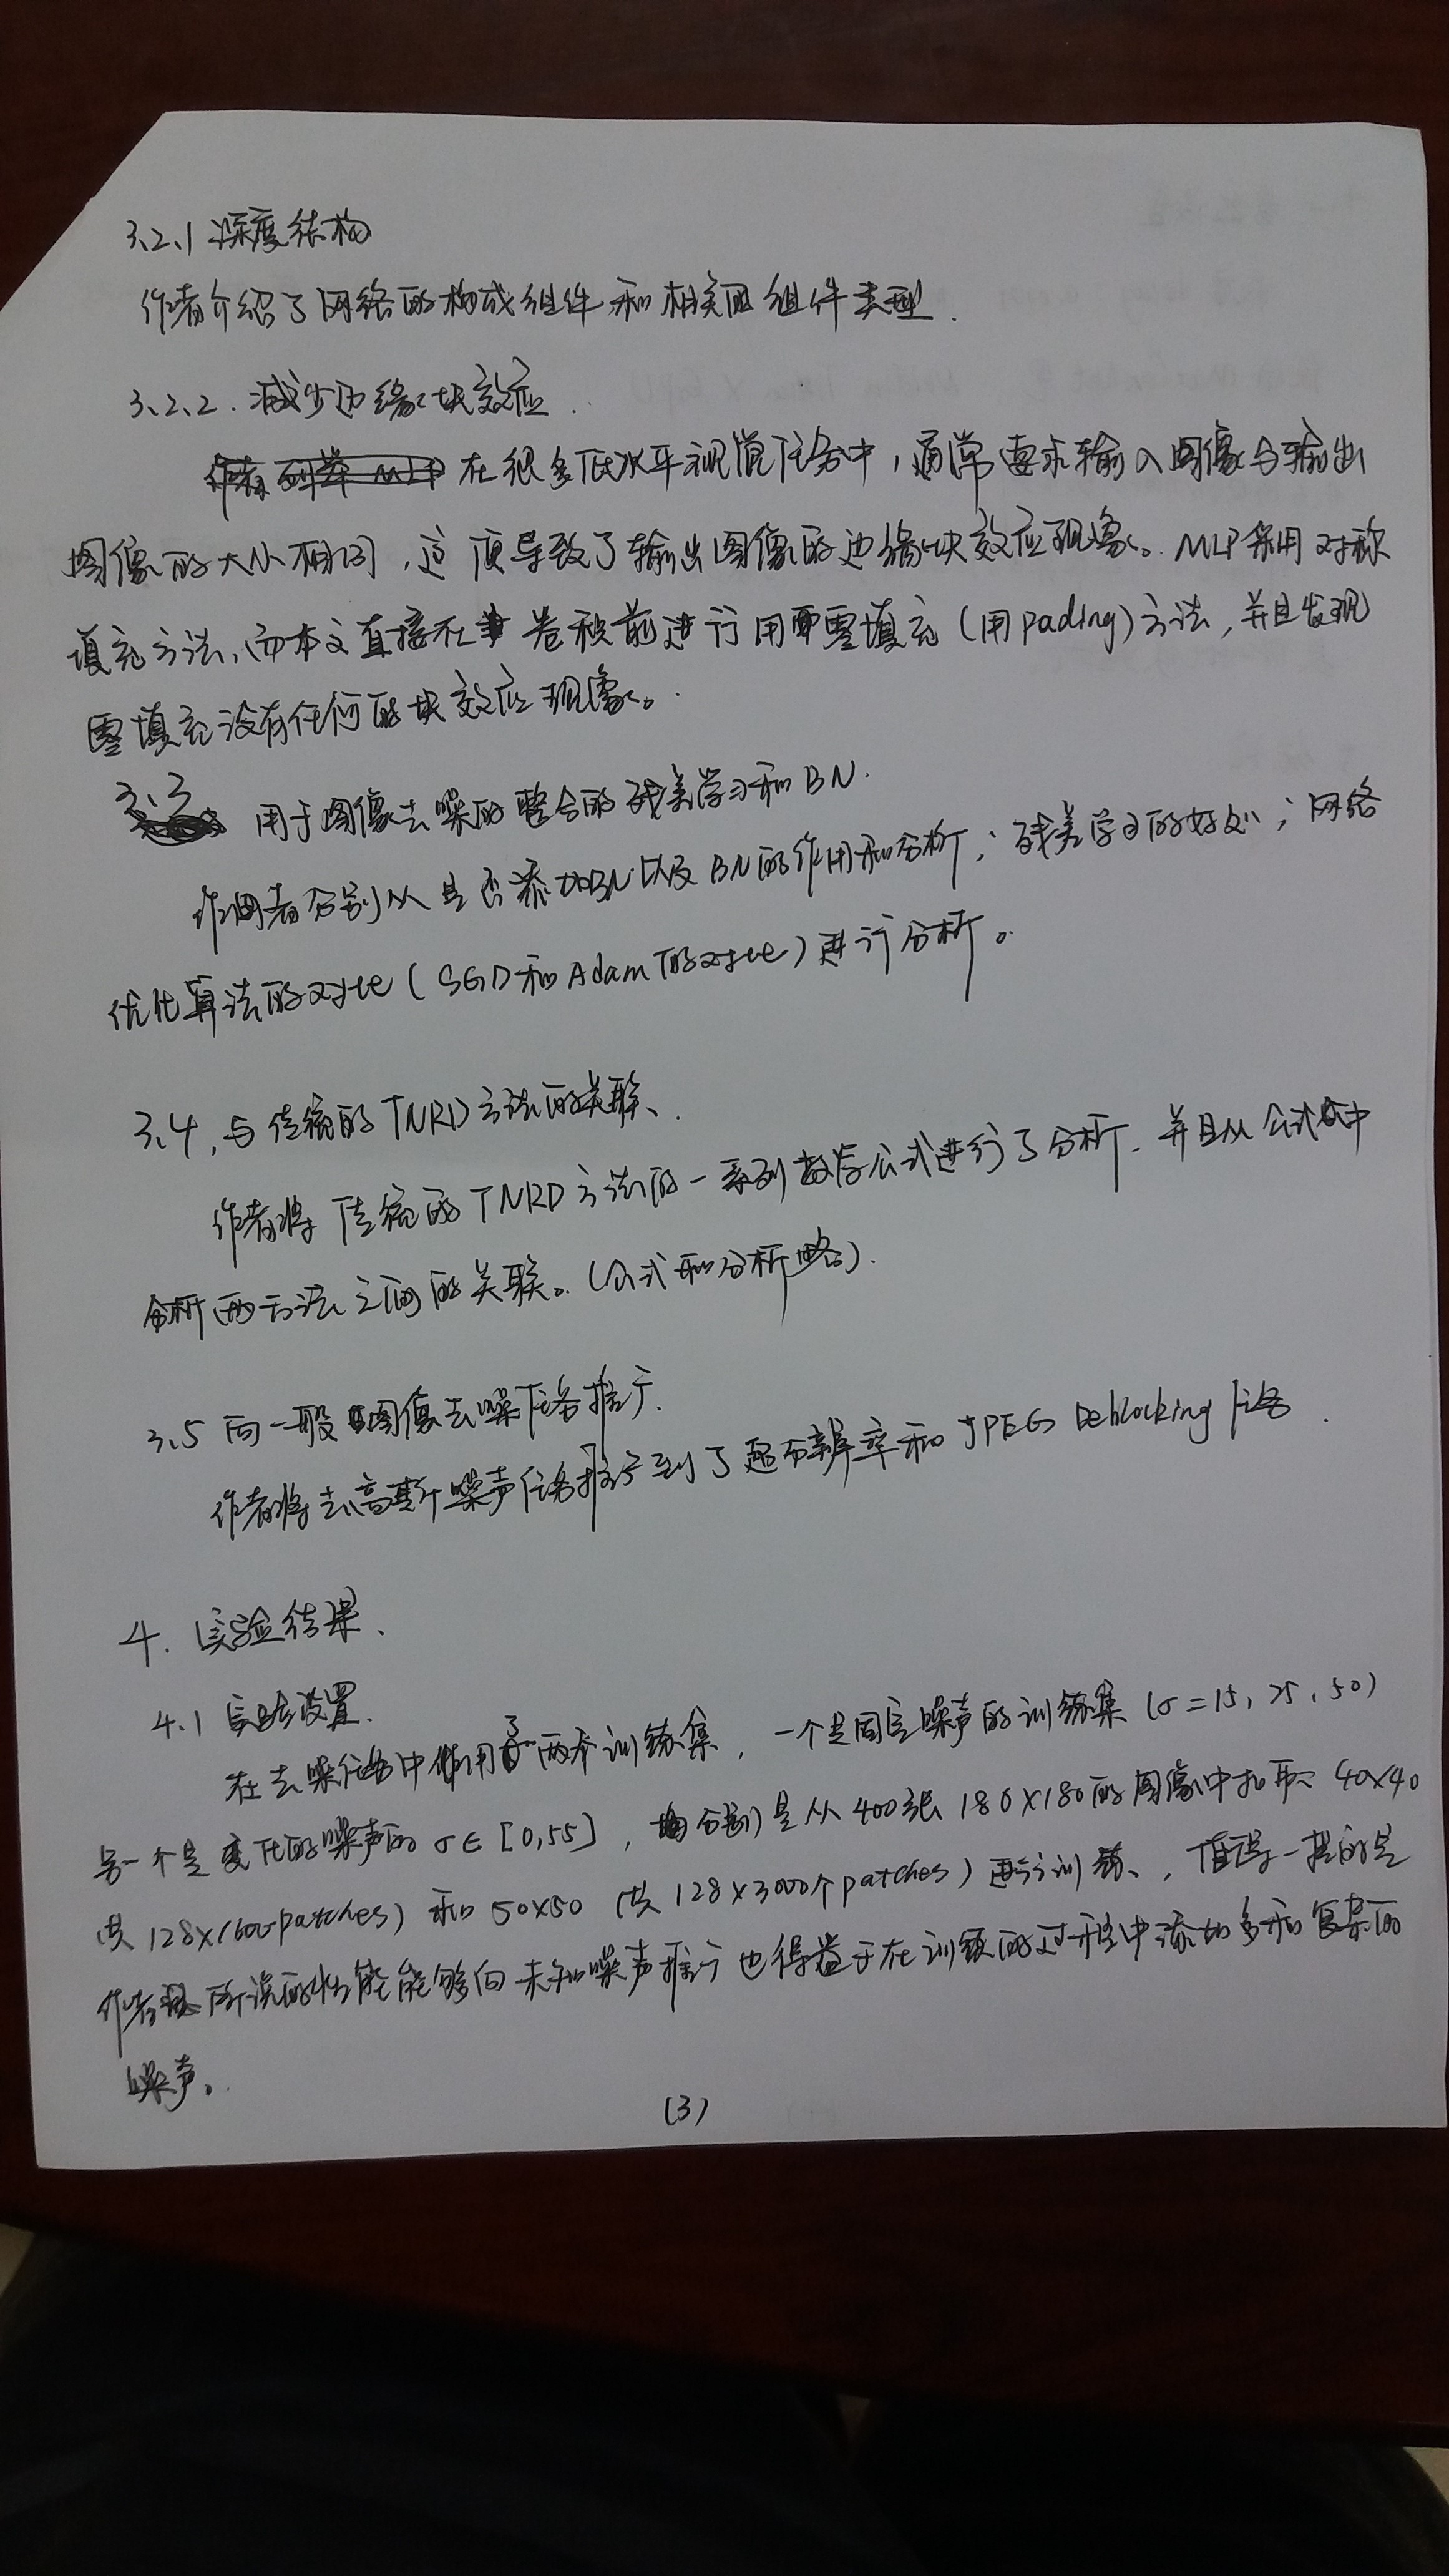 3.2.1 深度结构
作者介绍了网络的构成组件和相关的组件类型.
3.2.2. 减少边缘块效应.
在很多低水平视觉任务中,通常要求输入图像与输出
图像的大小相同,这便导致了输出图像的边缘块效应现象。MLP采用对称
填充方法,而本文直接在卷积前进行用零填充(用pading)方法,并且发现
零填充没有任何的块效应现象。
3.3 用于图像去噪的整合的残差学习和BN.
作者分别从是否添加BN以及BN的作用和分析;残差学习的好处;网络
优化算法的对比(SGD和Adam的对比)进行分析。
3.4,与传统的TNRD方法的关联、
作者将传统的TNRD方法的一系列数学公式进行了分析.并且从公式中
分析两方法之间的关联。(公式和分析略).
3.5 向一般图像去噪任务推广.
作者将去高斯噪声任务推广到了超分辨率和JPEG Deblocking任务.
4. 实验结果、
4.1 实验设置.
在去噪任务中使用了两个训练集,一个是固定噪声的训练集(σ=15, 25, 50)
另一个是变化的噪声的σ∈[0,55],分别是从400张180×180的图像中扣取40×40
(共128×1600patches)和50×50(共128×3000个patches)进行训练、,值得一提的是
作者所说的性能能够向未知噪声推广也得益于在训练的过程中添加多和复杂的
噪声。
(3)